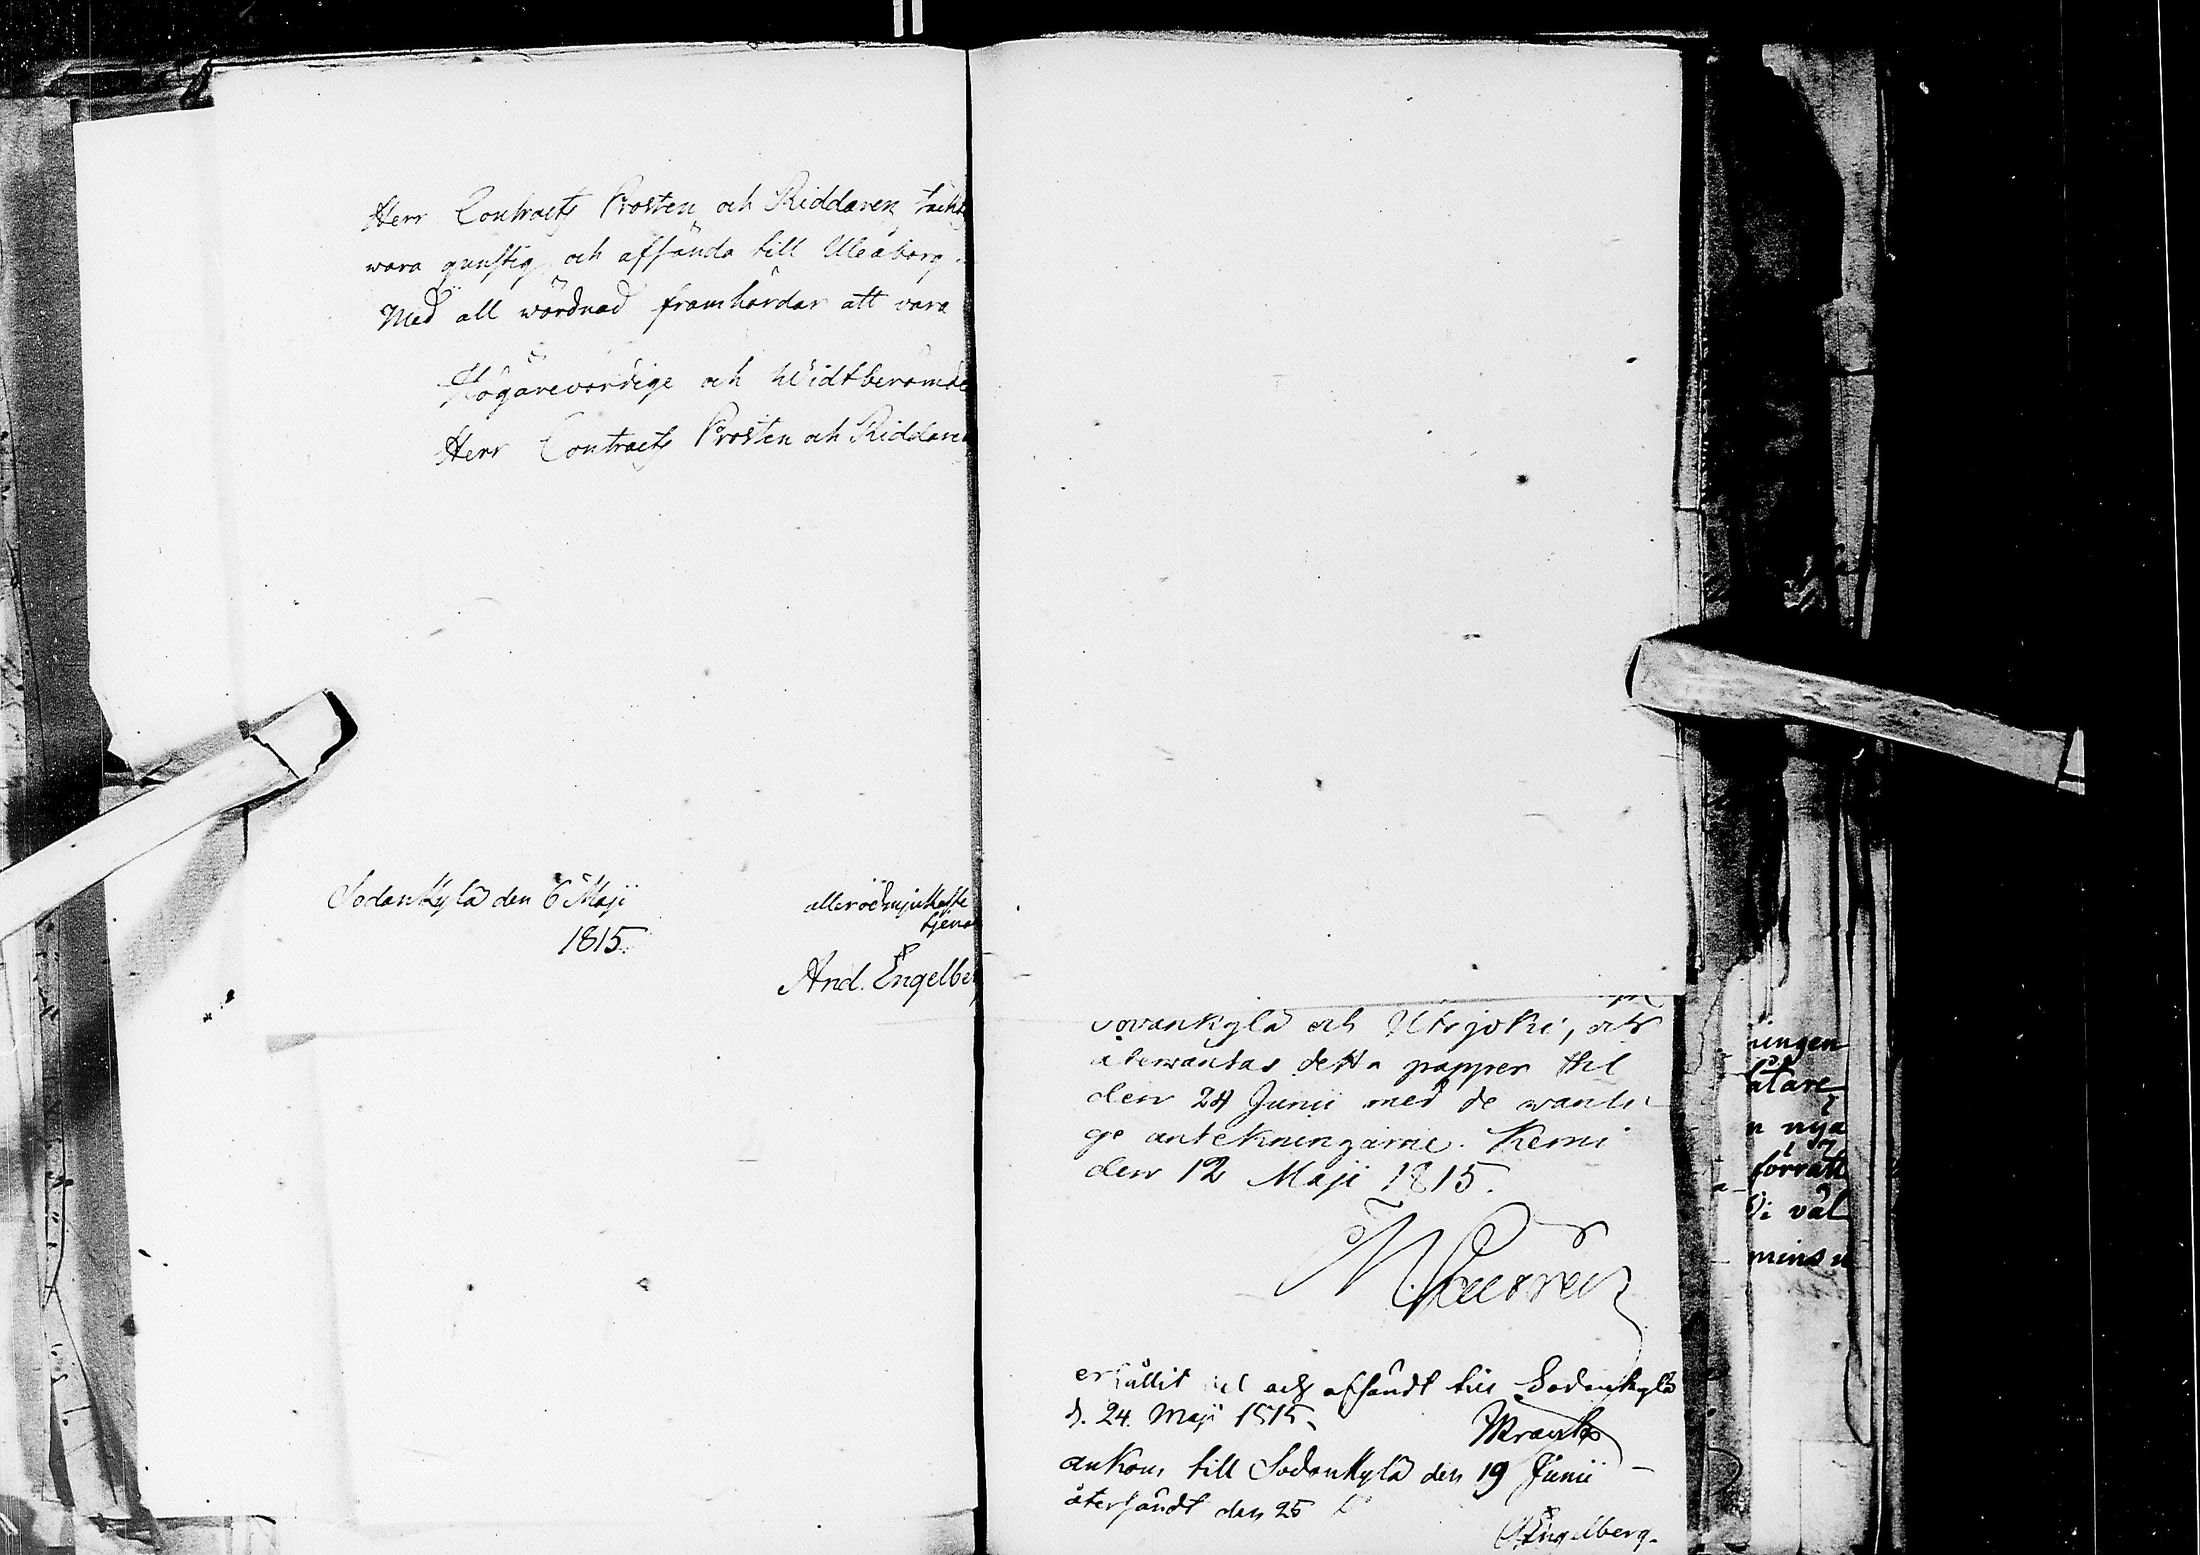 Herr Contracts Prosten och Riddaren täckt
wara gunstig och afsända till Uleåborg.
Med all wördnad framhärdar att vara
Högärevördige och Widtberömde
Herr Contracts Prosten och Riddaren
Sodankylä den 6 Maji
1815.
allerödmjukaste
tjenar
And. Engelberg
Sodankylä och Utsjoki, och
återwäntas detta papper till
den 24 Junii med de wanli-
ge antekningarne. Kemi
den 12 Maji 1815.
M.
erhållit och afsändt till Sodankylä
d. 24. Maji 1815.
ankom till Sodankylä den 19 Junii
återsändt den 25
Engelberg.
ningen
låtare
n nya
förrätt
väl
mins